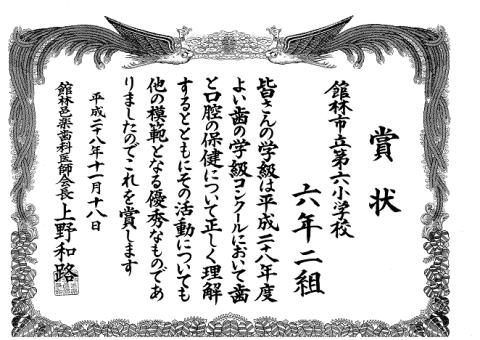 賞状
館林市立第六小学校
六年二組
皆さんの学級は平成二十八年度
よい歯の学級コンクールにおいて歯
と口腔の保健について正しく理解
するとともにその活動についても
他の模範となる優秀なものであ
りましたのでこれを賞します
平成二十八年十一月十八日
館林邑楽歯科医師会長 上野和路